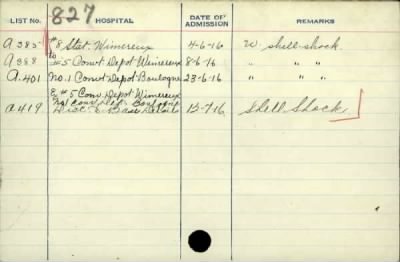 827
LIST No. HOSPITAL DATE OF ADMISSION REMARKS
A385 #8 Stat. Wimereux 4-6-16 W. shell-shock.
A388 to #5 Convt Depot Wimereux 8-6-16 " " "
A.401 No.1 Convt Depot Boulogne 23-6-16 " " "
& #5 Conv. Depot Wimereux
A419 Disc. Base Details 15-7-16 Shell Shock